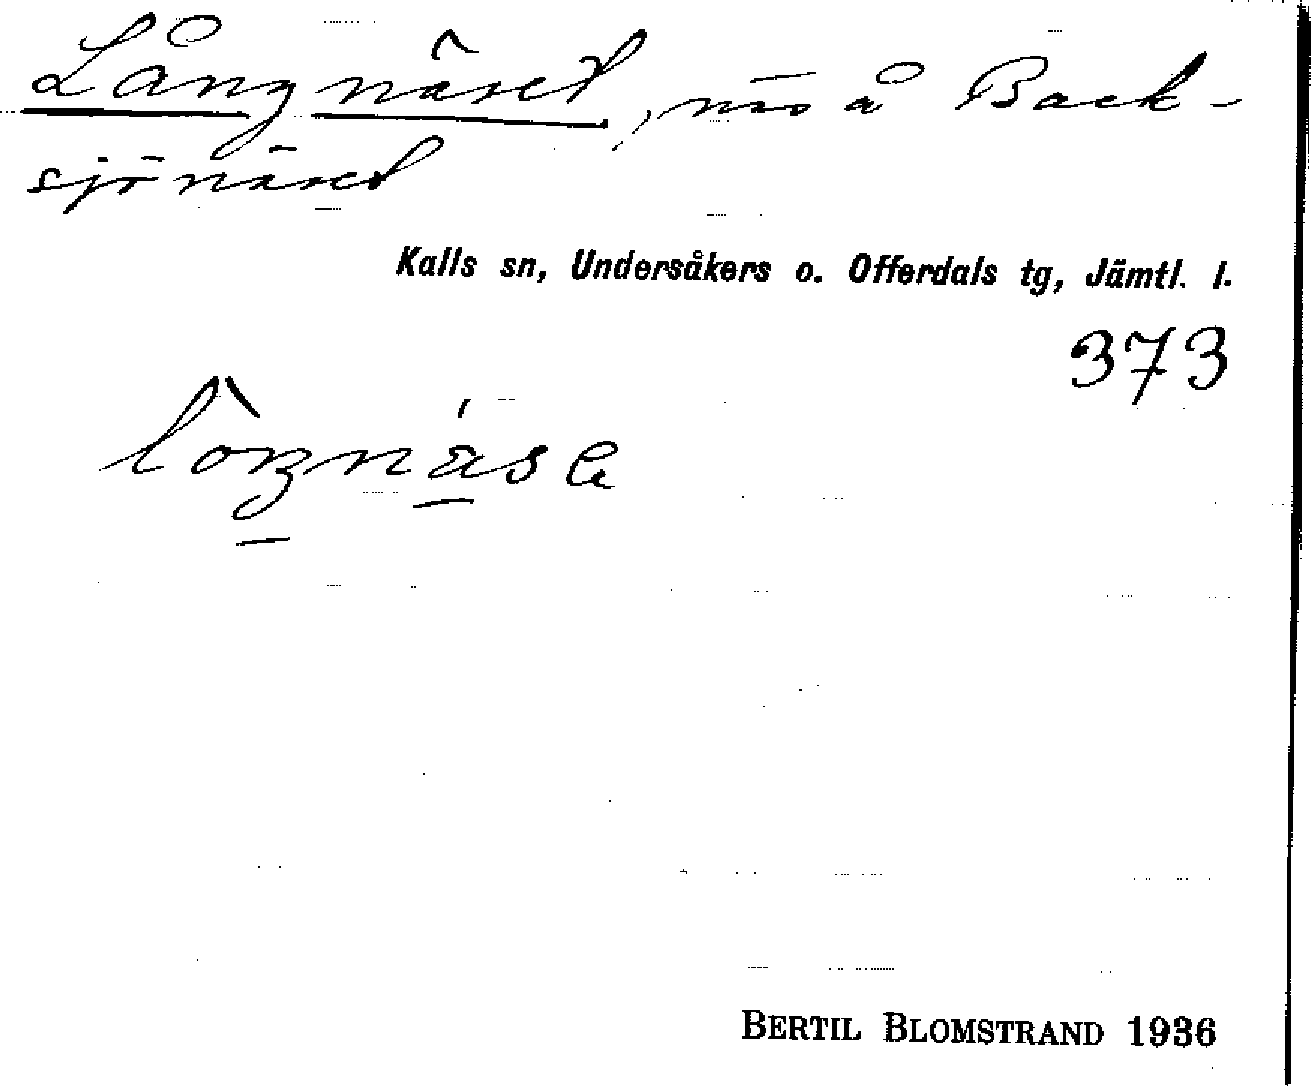 Långnäset, näs å Back-
sjönäset
Kalls sn, Undersåkers o. Offerdals tg, Jämtl. l.
373
BERTIL BLOMSTRAND 1936